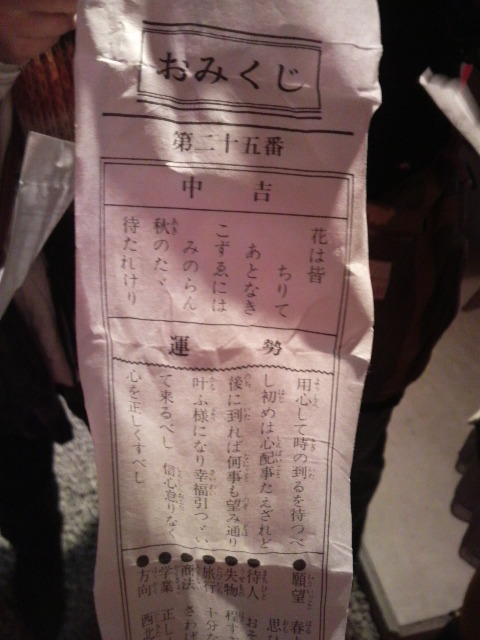 おみくじ
第二十五番
中吉
花は皆
ちりて
あとなき
こずゑには
みのらん
秋のたゞ
待たれけり
運勢
用心して時の到るを待つべ
し初めは心配事たえざれど
後に到れば何事も望み通り
叶ふ様になり幸福引つゞい
て来るべし 信心怠りなく
心を正しくすべし
●願望 春
●待人 おそ
●失物 程す
●旅行 十分
●商法 さわ
●学業 正し
●方向 西北